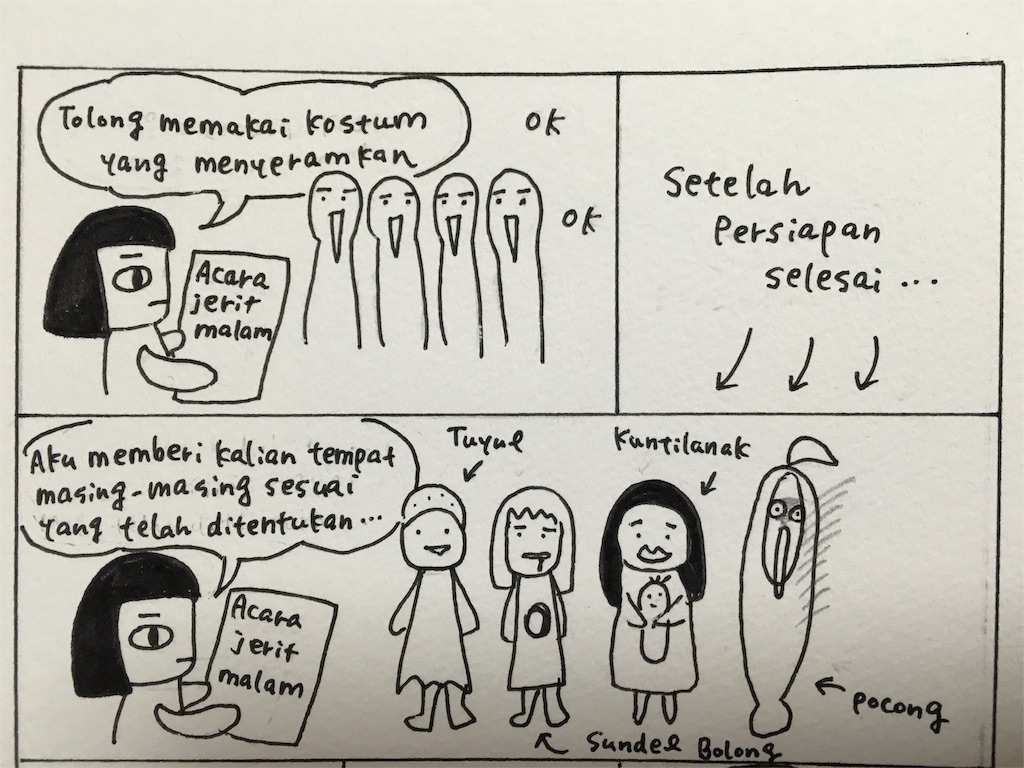 Tolong memakai kostum
yang menyeramkan
OK
OK
Acara
jerit
malam
Setelah
Persiapan
selesai ...
Aku memberi kalian tempat
masing-masing sesuai
yang telah ditentukan...
Acara
jerit
malam
Tuyul
Kuntilanak
Sundel Bolong
pocong